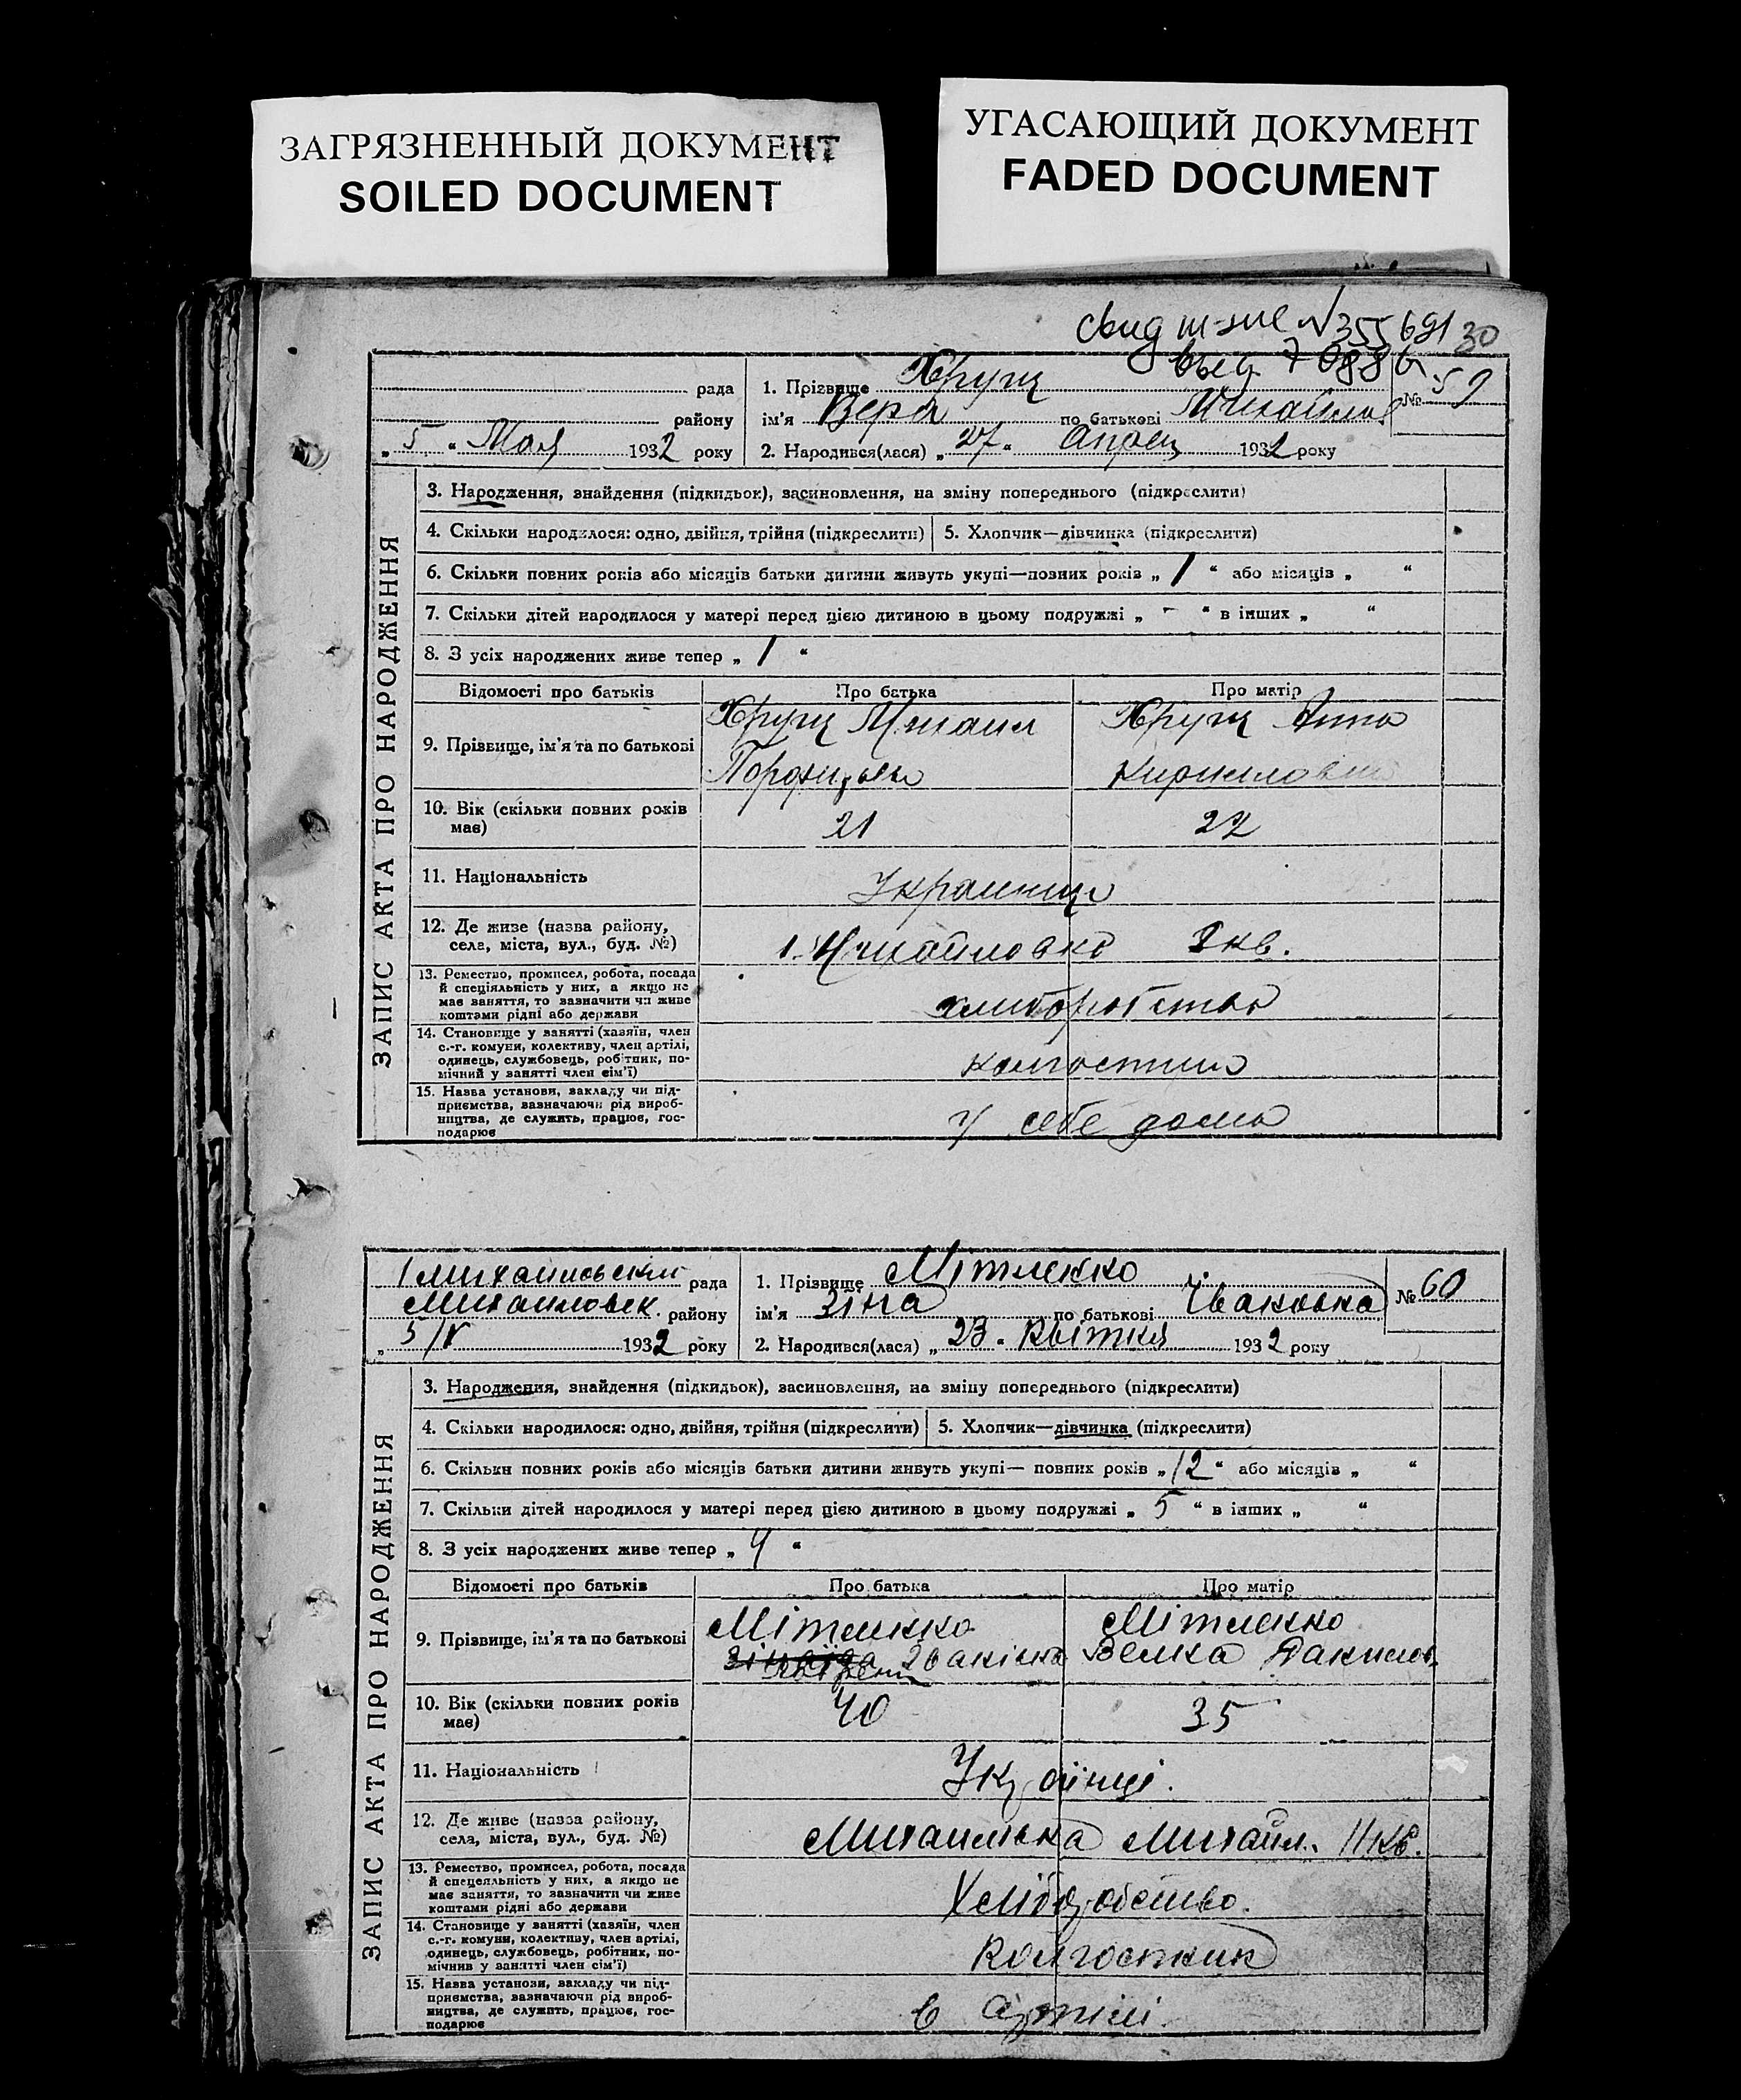 ЗАГРЯЗНЕННЫЙ ДОКУМЕНТ
SOILED DOCUMENT
УГАСАЮЩИЙ ДОКУМЕНТ
FADED DOCUMENT
№ 355691 30
рада
району
„ 5 “ Мая 1932 року
1. Прізвище Хрущ
ім'я Вера по батькові Михайлов
2. Народився(лася) „ 27 “ Апрель 1932 року
№ 59
ЗАПИС АКТА ПРО НАРОДЖЕННЯ
3. Народження, знайдення (підкидьок), засиновлення, на зміну попереднього (підкреслити)
4. Скільки народилося: одно, двійня, трійня (підкреслити)
5. Хлопчик—дівчинка (підкреслити)
6. Скільки повних років або місяців батьки дитини живуть укупі—повних років „ 1 “ або місяців „ “
7. Скільки дітей народилося у матері перед цією дитиною в цьому подружжі „ - “ в інших „ “
8. З усіх народжених живе тепер „ 1 “
Відомості про батьків
Про батька
Про матір
9. Прізвище, ім'я та по батькові
Хрущ Михаил
Хрущ Анна
Кирилловна
10. Вік (скільки повних років
має)
21
22
11. Національність
Украинци
12. Де живе (назва району,
села, міста, вул., буд. №)
1. Михайловка 2 кв.
13. Ремество, промисел, робота, посада
й спеціяльність у них, а якщо не
має заняття, то зазначити чи живе
коштами рідні або держави
хлиборобство
14. Становище у занятті (хазяїн, член
с.-г. комуни, колективу, член артілі,
одинець, службовець, робітник, по-
мічний у занятті член сім'ї)
колгоспник
15. Назва установи, закладу чи під-
приємства, зазначаючи рід вироб-
ництва, де служить, працює, гос-
подарює
у себе дома
1 Михайловский рада
Михаиловск. району
„ 5/V 1932 року
1. Прізвище Мітленко
ім'я Зіна по батькові Івановна
2. Народився(лася) „ 23 “ Квітня 1932 року
№ 60
ЗАПИС АКТА ПРО НАРОДЖЕННЯ
3. Народження, знайдення (підкидьок), засиновлення, на зміну попереднього (підкреслити)
4. Скільки народилося: одно, двійня, трійня (підкреслити)
5. Хлопчик—дівчинка (підкреслити)
6. Скільки повних років або місяців батьки дитини живуть укупі— повних років „ 12 “ або місяців „ “
7. Скільки дітей народилося у матері перед цією дитиною в цьому подружжі „ 5 “ в інших „ “
8. З усіх народжених живе тепер „ 4 “
Відомості про батьків
Про батька
Про матір
9. Прізвище, ім'я та по батькові
Мітленко
Мітленко
10. Вік (скільки повних років
має)
40
35
11. Національність
Українці.
12. Де живе (назва району,
села, міста, вул., буд. №)
Михаилівка Михайл. 11 кв.
13. Ремество, промисел, робота, посада
й спецеяльність у них, а якщо не
має заняття, то зазначити чи живе
коштами рідні або держави
Хліборобство.
14. Становище у занятті (хазяїн, член
с.-г. комуни, колективу, член артілі,
одинець, службовець, робітник, по-
мічнив у занятті член сім'ї)
Колгоспник
15. Назва установи, закладу чи під-
приємства, зазначаючи рід вироб-
ництва, де служить, працює, гос-
подарює
в Артілі.